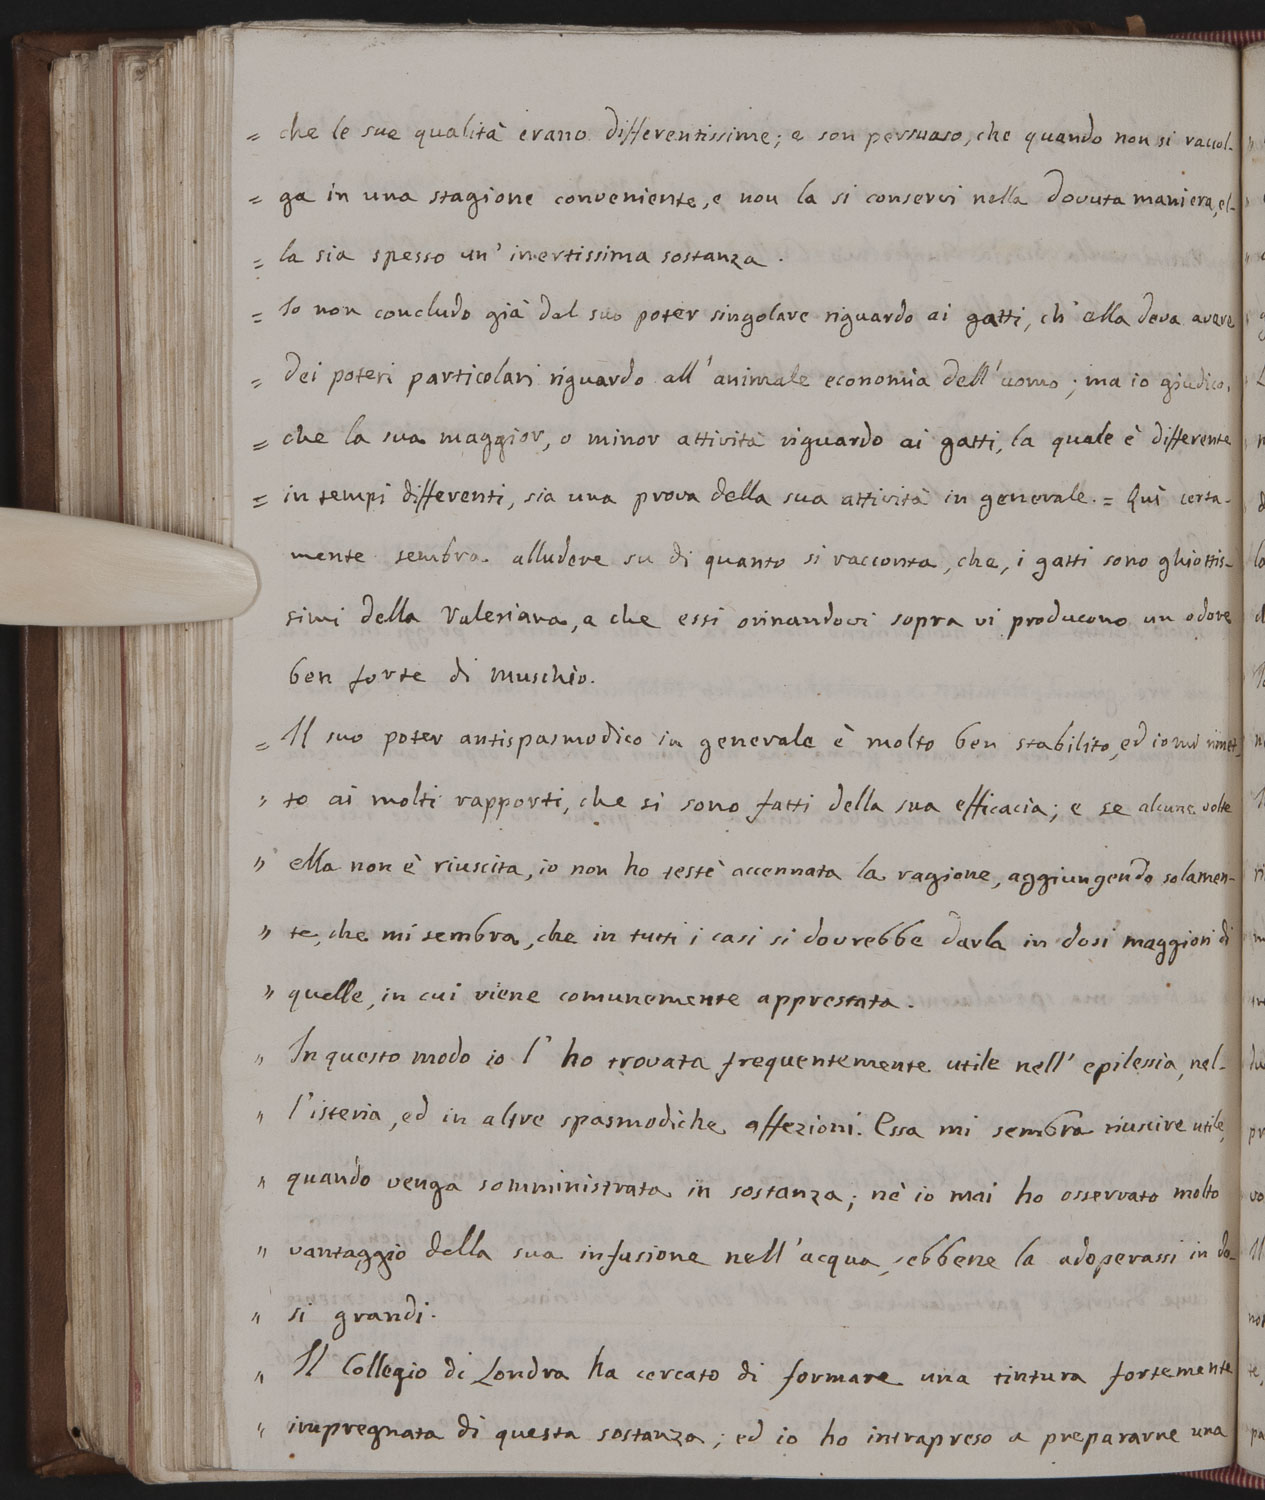 = che le sue qualità erano differentissime; e son persuaso, che quando non si racol-
= ga in una stagione conveniente, e non la si conservi nella dovuta maniera, el-
= la sia spesso un' inertissima sostanza.
= Io non concludo già dal suo poter singolare riguardo ai gatti, ch' ella deva avere
= dei poteri particolari riguardo all' animale economia dell' uomo; ma io giudico,
= che la sua maggior, o minor attività riguardo ai gatti, la quale è differente
= in tempi differenti, sia una prova della sua attività in generale. = Quì certa-
mente sembra alludere su di quanto si racconta, che, i gatti sono ghiottis-
simi della Valeriana, e che essi orinandovi sopra vi producono un odore
ben forte di muschio.
= Il suo poter antispasmodico in generale è molto ben stabilito, ed io mi rimet-
" to ai molti rapporti, che si sono fatti della sua efficacia; e se alcune volte
" ella non è riuscita, io non ho testè accennata la ragione, aggiungendo solamen-
" te, che mi sembra, che in tutti i casi si dovrebbe darla in dosi maggiori di
" quelle, in cui viene comunemente apprestata.
" In questo modo io l' ho trovata frequentemente utile nell' epilessia, nel-
" l'isteria, ed in altre spasmodiche affezioni. Essa mi sembra riuscire utile,
" quando venga somministrata in sostanza; nè io mai ho osservato molto
" vantaggio della sua infusione nell' acqua, sebbene la adoperassi in do-
" si grandi.
" Il Collegio di Londra ha cercato di formare una tintura fortemente
" impregnata di questa sostanza; ed io ho intrapreso a prepararne una